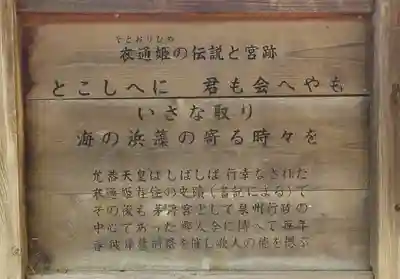 そとおりひめ
衣通姫の伝説と宮跡
とこしへに 君も会へやも
いさな取り
海の浜藻の寄る時々を
允恭天皇はしばしば行幸なされた
衣通姫在住の史蹟(書記による)で
その後も茅渟宮として泉州行政の
中心であった 郷人今に傳へて毎年
を催し歌人の徳を偲ぶ